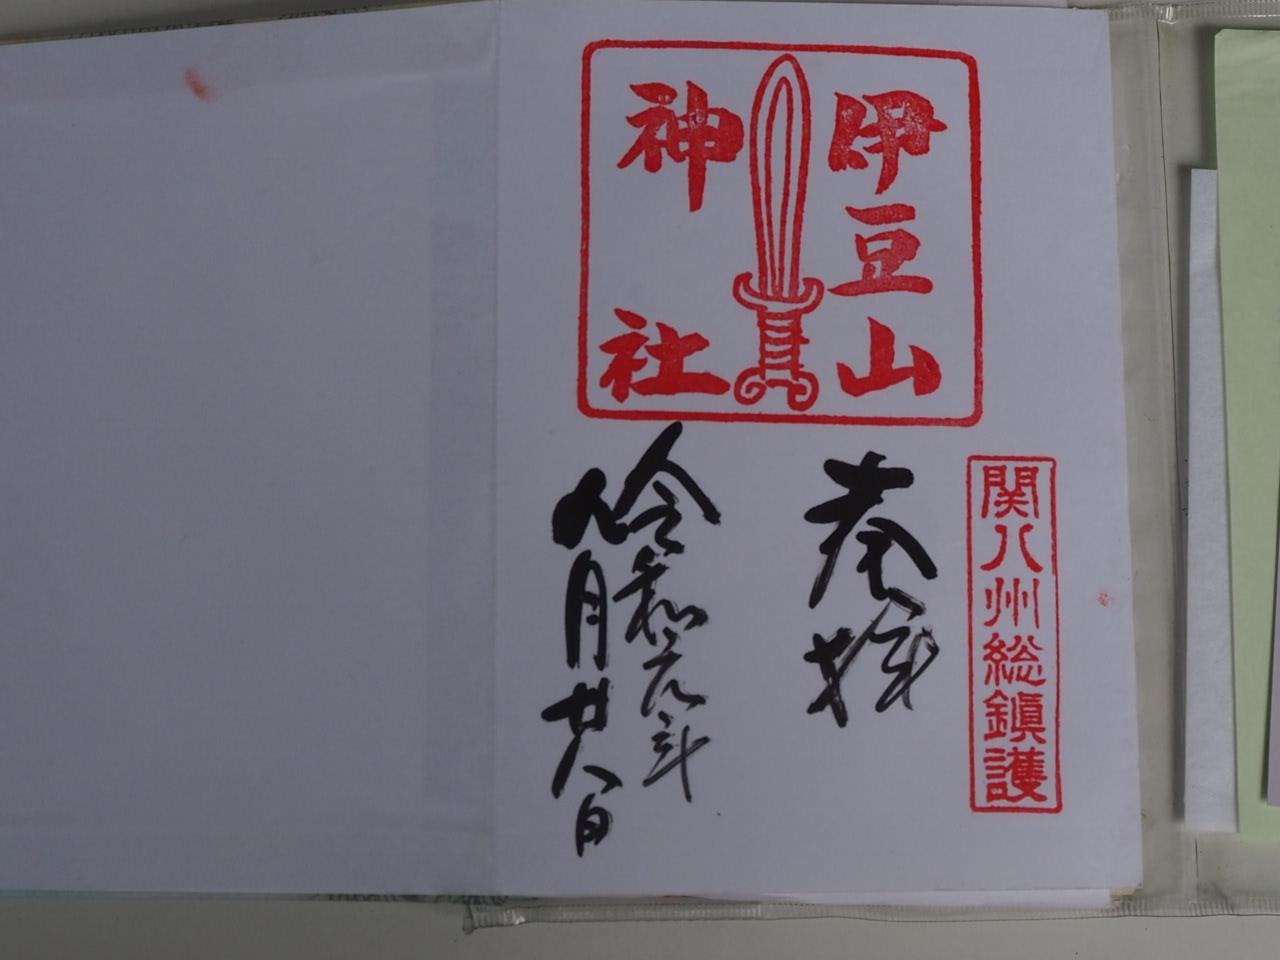 伊豆山
神社
関八州総鎮護
奉拝
令和元年
九月廿八日